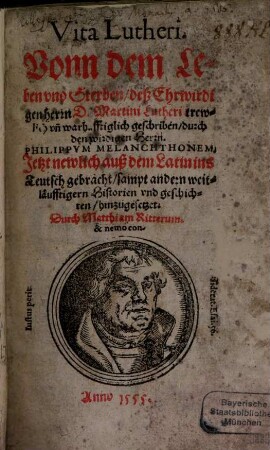 Vita Lutheri.
Vonn dem Le-
ben vnd Sterben / deß Ehrwirdi
gen herrn D. Martini Lutheri trew-
lich vñ warhafftiglich geschriben / durch
den wirdigen Herrn.
PHILIPPVM MELANCHTHONEM,
Jetzt newlich auß dem Latin ins
Teutsch gebracht / sampt andern weit-
läufftigern Historien vnd geschich-
ten / hinzugesetzet.
Durch Matthiam Ritterum.
& nemo con-
Iustus perit:
Anno 1555.
Bayerische
Staatsbibliothek
München